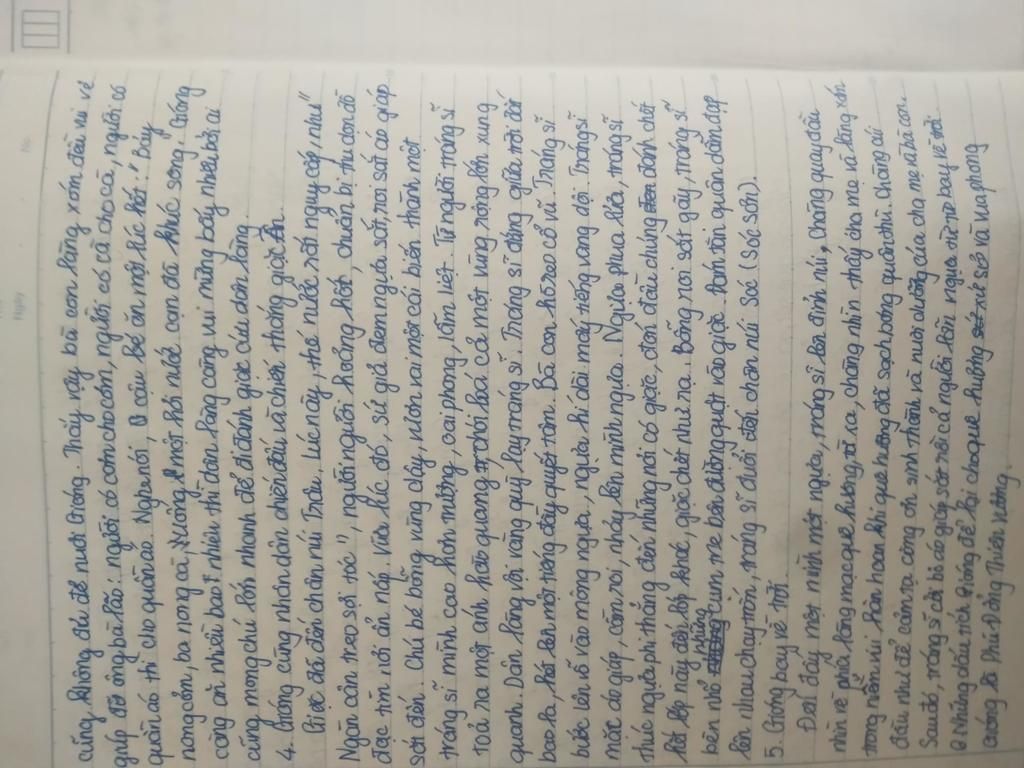 cũng không đủ để nuôi Gióng. Thấy vậy bà con làng xóm đều vui vẻ
giúp đỡ ông bà lão: người có cơm cho cơm, người có cà cho cà, người có
quần áo thì cho quần áo. Nghe nói, cậu bé ăn một lúc hết: "Bảy
nong cơm, ba nong cà, Xuống một hơi nước cạn đà khúc sông, Gióng
càng ăn nhiều bao nhiêu thì dân làng càng vui mừng bấy nhiêu bởi ai
cũng mong chú lớn nhanh để đi đánh giặc cứu dân làng.
4. Gióng cùng nhân dân chiến đấu và chiến thắng giặc Ân.
Giặc đã đến chân núi Trâu. Lúc này, thế nước rất nguy cấp, như
"Ngàn cân treo sợi tóc", người người hoảng hốt, chuẩn bị thu dọn đồ
đạc tìm nơi ẩn náp. Vừa lúc đó, sứ giả đem ngựa sắt, roi sắt áo giáp
sắt đến. Chú bé bỗng vùng dậy, vươn vai một cái biến thành một
tráng sĩ mình cao hơn trượng, oai phong, lẫm liệt. Từ người tráng sĩ
toả ra một ánh hào quang chói loá cả một vùng rộng lớn xung
quanh. Dân làng vội vàng quỳ lạy tráng sĩ. Tráng sĩ đứng giữa trời đất
bao la, hét lên một tiếng đầy quyết tâm. Bà con hò reo cổ vũ. Tráng sĩ
bước lên vỗ vào mông ngựa, ngựa hí dài mấy tiếng vang dội. Tráng sĩ
mặc áo giáp, cầm roi, nhảy lên mình ngựa. Ngựa phun lửa, tráng sĩ
thúc ngựa phi thẳng đến những nơi có giặc, đón đầu chúng đánh chết
hết lớp này đến lớp khác, giặc chết như rạ. Bỗng roi sắt gãy, tráng sĩ
bèn nhổ những cụm tre bên đường quật vào giặc. Đám tàn quân dẫm đạp
lên nhau chạy trốn, tráng sĩ đuổi đến chân núi Sóc (Sóc Sơn).
5. Gióng bay về trời.
Đến đấy một mình một ngựa, tráng sĩ lên đỉnh núi, Chàng quay đầu
nhìn về phía làng mạc quê hương, từ xa, chàng nhìn thấy cha mẹ và làng xóm
trong niềm vui hân hoan khi quê hương đã sạch bóng quân thù. Chàng cúi
đầu như để cảm tạ công ơn sinh thành và nuôi dưỡng của cha mẹ và bà con.
Sau đó, tráng sĩ cởi bỏ áo giáp sắt rồi cả người lẫn ngựa từ từ bay về trời.
Những dấu tích Gióng để lại cho quê hương xứ sở và vua phong
Gióng là Phù Đổng Thiên Vương